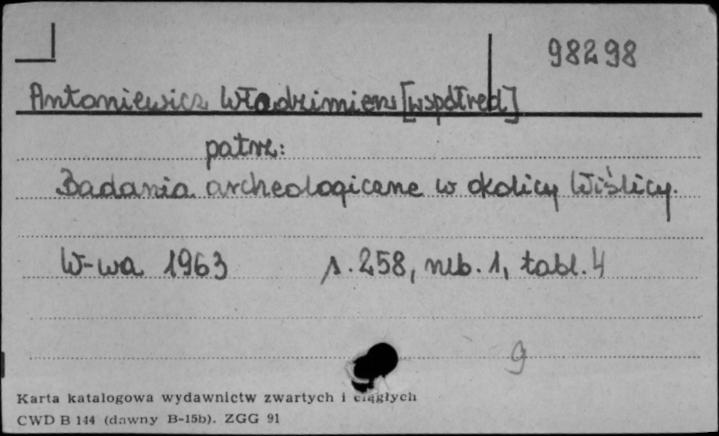 98298
Antoniewicz Włodzimierz [współred]
patrz:
Badania archeologiczne w okolicy Wiślicy.
W-wa 1963 s. 258, nlb. 1, tabl. 4
9
Karta katalogowa wydawnictw zwartych i ciągłych
CWD B 144 (dawny B-15b). ZGG 91